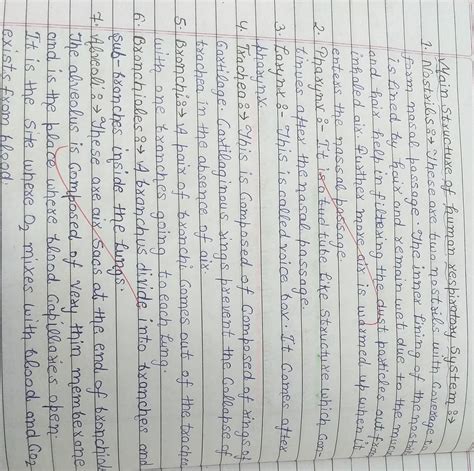 Main Structure of human respiratory System :→
1. Nostrils :→ These are two nostrils with Coverage to
form nasal passage. The inner lining of the nostrils
is lined by hair and remain wet due to the mucus
and hair help in filtering the dust particles out from
inhaled air. further more air is warmed up when it
enters the nassal passage
2. Pharynx :- It is a tube like structure which con-
tinues after the nasal passage
3. Larynx :- This is called voice box. It Comes after
pharynx.
4. Trachea :→ This is Composed of Composed of rings of
Cartilage. Cartilaginous rings prevent the Collapse of
trachea in the absence of air.
5. Bronchi :→ A pair of bronchi Comes out of the trachea
with one branches going to each lung.
6. Bronchioles :→ A branchus divide into branches and
sub-branches inside the lungs.
7. Alveoli :→ These are air Sacs at the end of bronchiol
The alveolus is Composed of very thin memberone
and is the place where blood Capillaries open.
It is the Site where O2 mixes with blood and Co2
exists from blood.